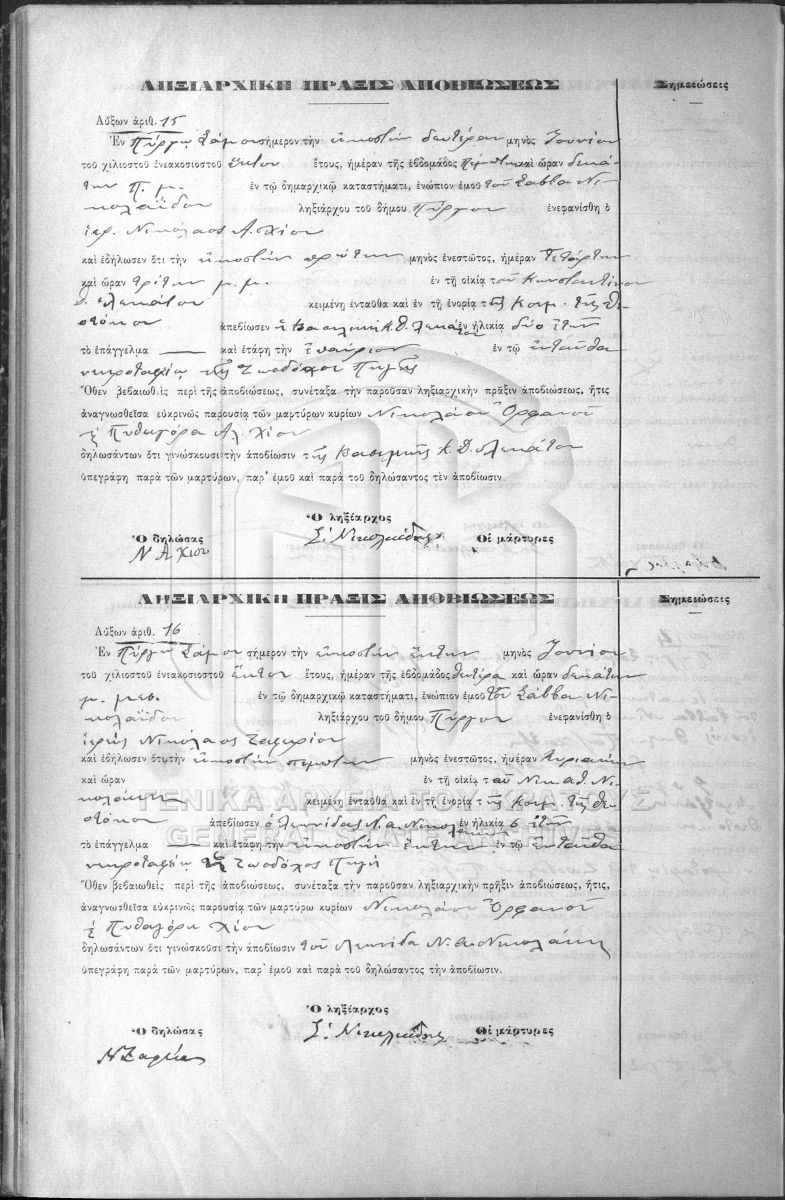 ΛΗΞΙΑΡΧΙΚΗ ΠΡΑΞΙΣ ΑΠΟΒΙΩΣΕΩΣ
Σημειώσεις
Αὔξων ἀριθ. 15
Ἐν Πύργῳ Σάμου σήμερον τὴν εἰκοστὴν δευτέραν μηνὸς Ἰουνίου
τοῦ χιλιοστοῦ ἐνεακοσιοστοῦ ἕκτου ἔτους, ἡμέραν τῆς ἑβδομάδος Πέμπτην καὶ ὥραν δεκά-
την π. μ. ἐν τῷ δημαρχικῷ καταστήματι, ἐνώπιον ἐμοῦ τοῦ Σάββα Νι-
κολαΐδου ληξιάρχου τοῦ δήμου Πύργου ἐνεφανίσθη ὁ
ἱερ. Νικόλαος Α. Χίου
καὶ ἐδήλωσεν ὅτι τὴν εἰκοστὴν πρώτην μηνὸς ἐνεστῶτος, ἡμέραν Τετάρτην
καὶ ὥραν τρίτην μ. μ. ἐν τῇ οἰκίᾳ τοῦ Κωνσταντίνου
κειμένῃ ἐνταῦθα καὶ ἐν τῇ ἐνορίᾳ τῆς Κοιμ. τῆς Θε-
οτόκου ἀπεβίωσεν ἡ Βασιλικὴ Κ. Θ. ἐν ἡλικίᾳ δύο ἐτῶν
τὸ ἐπάγγελμα — καὶ ἐτάφη τὴν ἐπαύριον ἐν τῷ ἐνταῦθα
νεκροταφείῳ τῆς Ζωοδόχου Πηγῆς
Ὅθεν βεβαιωθεὶς περὶ τῆς ἀποβιώσεως, συνέταξα τὴν παροῦσαν ληξιαρχικὴν πρᾶξιν ἀποβιώσεως, ἥτις
ἀναγνωσθεῖσα εὐκρινῶς παρουσίᾳ τῶν μαρτύρων κυρίων Νικολάου Ὀρφανοῦ
κ Πυθαγόρα Αλ. Χίου
δηλωσάντων ὅτι γινώσκουσι τὴν ἀποβίωσιν τῆς Βασιλικῆς Κ. Θ.
ὑπεγράφη παρὰ τῶν μαρτύρων, παρ' ἐμοῦ καὶ παρὰ τοῦ δηλώσαντος τὴν ἀποβίωσιν.
Ὁ ληξίαρχος
Ὁ δηλώσας Σ. Νικολαΐδης Οἱ μάρτυρες
Ν Α Χίου
ΛΗΞΙΑΡΧΙΚΗ ΠΡΑΞΙΣ ΑΠΟΒΙΩΣΕΩΣ
Σημειώσεις
Αὔξων ἀριθ. 16
Ἐν Πύργῳ Σάμου σήμερον τὴν εἰκοστὴν ἕκτην μηνὸς Ἰουνίου
τοῦ χιλιοστοῦ ἐνεακοσιοστοῦ ἕκτου ἔτους, ἡμέραν τῆς ἑβδομάδος Δευτέρα καὶ ὥραν δεκάτην
ἐν τῷ δημαρχικῷ καταστήματι, ἐνώπιον ἐμοῦ τοῦ Σάββα Νι-
κολαΐδου ληξιάρχου τοῦ δήμου Πύργου ἐνεφανίσθη ὁ
ἱερεὺς Νικόλαος
καὶ ἐδήλωσεν ὅτι τὴν εἰκοστὴν πέμπτην μηνὸς ἐνεστῶτος, ἡμέραν Κυριακὴν
καὶ ὥραν ἐν τῇ οἰκίᾳ τοῦ Νικ. Αθ. Νι-
κολάκη κειμένῃ ἐνταῦθα καὶ ἐν τῇ ἐνορίᾳ τῆς Κοιμ. τῆς Θε-
οτόκου ἀπεβίωσεν ὁ Λεωνίδας Ν. Α. Νικολάκης ἐν ἡλικίᾳ 6 ἐτῶν
τὸ ἐπάγγελμα — καὶ ἐτάφη τὴν εἰκοστὴν ἕκτην ἐν τῷ ἐνταῦθα
νεκροταφείῳ Ζωοδόχος Πηγή
Ὅθεν βεβαιωθεὶς περὶ τῆς ἀποβιώσεως, συνέταξα τὴν παροῦσαν ληξιαρχικὴν πρᾶξιν ἀποβιώσεως, ἥτις,
ἀναγνωσθεῖσα εὐκρινῶς παρουσίᾳ τῶν μαρτύρω κυρίων Νικολάου Ὀρφανοῦ
κ Πυθαγόρα Χίου
δηλωσάντων ὅτι γινώσκουσι τὴν ἀποβίωσιν τοῦ Λεωνίδα Ν. Α. Νικολάκη
ὑπεγράφη παρὰ τῶν μαρτύρων, παρ' ἐμοῦ καὶ παρὰ τοῦ δηλώσαντος τὴν ἀποβίωσιν.
Ὁ ληξίαρχος
Ὁ δηλώσας Σ. Νικολαΐδης Οἱ μάρτυρες
ΓΕΝΙΚΑ ΑΡΧΕΙΑ ΤΟΥ ΚΡΑΤΟΥΣ
GENERAL STATE ARCHIVES